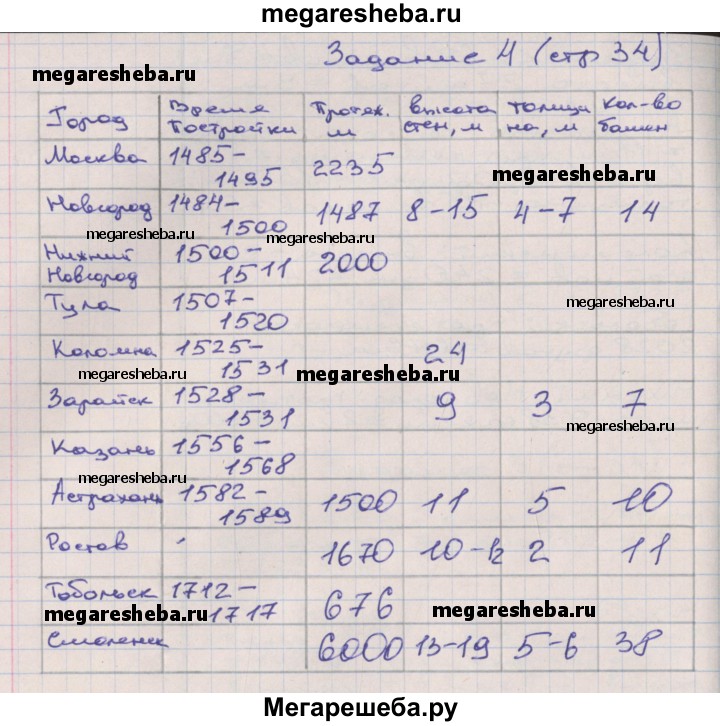 megaresheba.ru
Задание 4 (стр 34)
megaresheba.ru
Город Время Постройки Протяж. м высота стен, м толщина, м Кол-во башен
Москва 1485-1495 2235
megaresheba.ru
Новгород 1484-1500 1487 8-15 4-7 14
megaresheba.ru megaresheba.ru
Нижний Новгород 1500-1511 2000
Тула 1507-1520
megaresheba.ru
Коломна 1525-1531 24
megaresheba.ru megaresheba.ru
Зарайск 1528-1531 9 3 7
megaresheba.ru
Казань 1556-1568
megaresheba.ru
Астрахань 1582-1589 1500 11 5 10
Ростов - 1670 10-12 2 11
Тобольск 1712-1717 676
megaresheba.ru megaresheba.ru
Смоленск 6000 13-19 5-6 38
Мегарешеба.ру